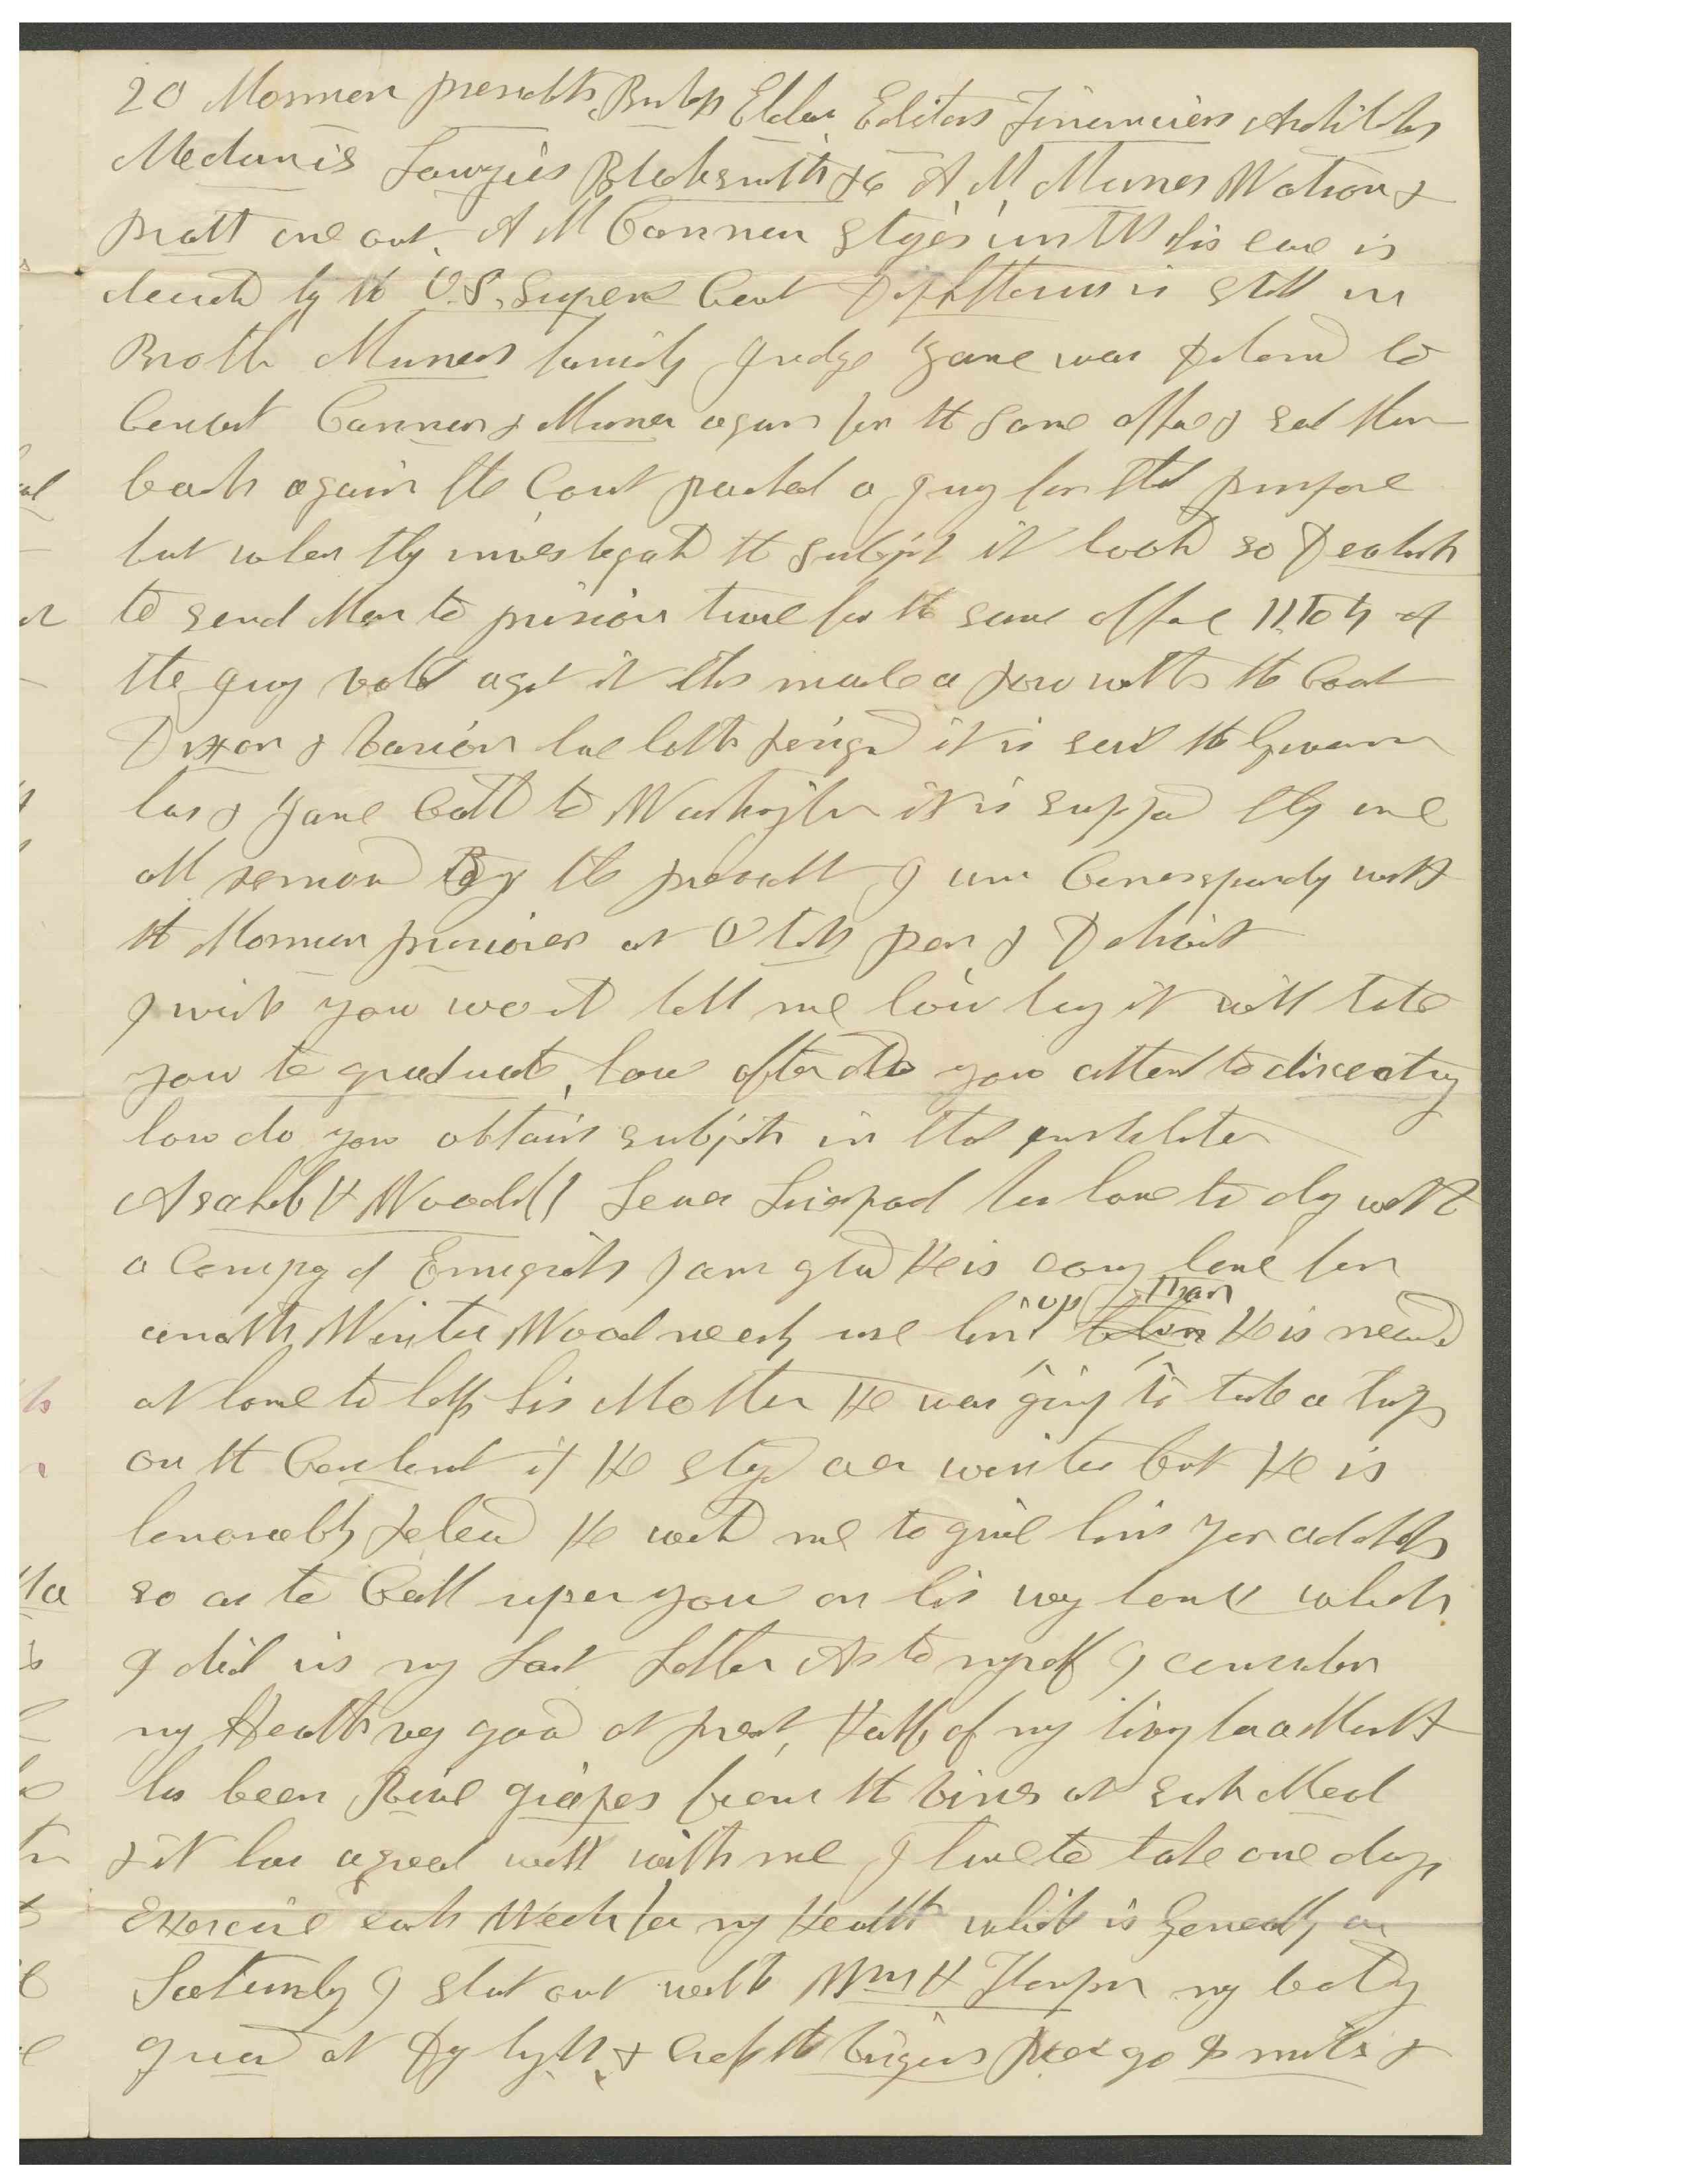 20 Mormon presidets Bishops Elders Editors Financiers Architets
Mechanis Lawyers Blacksmith &c A, M, Musser Watson &
pratt are out. A M Cannon Stayes untill his case is
decided by the U.S. Supers Court Diptheria is still in
Broth Mussers family Judge Zane was determd to
Convict Cannon & Musser again for the same offne & send them
back again the Court packed a jury for that purpose
but when they investigated the subject it lookd so Devlish
to send Men to prision twice for the same offne 11 to 4 of
the jury voted agst it this made a row with the Court
Dixon & Varian have both resignd it is said the Governor
has & Zane Calld to Washington it is supposd they are
all removd By the presidt I am Corresponding with
the Mormon prisioners at Utah pen, & Detroit
I wish you would tell me how long it will take
you to graduate, how often do you attend to disecting
how do you obtain subjets in that institution
Asahel H Woodruff Leaves Liverpool for home to day with
a Compay of Emigrants I am glad He is comig home for
another Winter Wood neerly use him up than He is needed
at home to help his Mother He was going to take a trip
on the Continent if He Stayd over winter but He is
honorably releasd He wantd me to give him your address
so as to Call upon you on his way home which
I did in my Last Letter As to myself I consider
my Health very good at present, Half of my living for a Month
has been Ripe grapes from the vines at each Meal
& it has agreed well with me I have to take one days
Exercise each Week for my Health which is Generally on
Saturday I start out with Wm H Thompson my body
guard at Day light & Creep the bigers Nest go 8 miles &